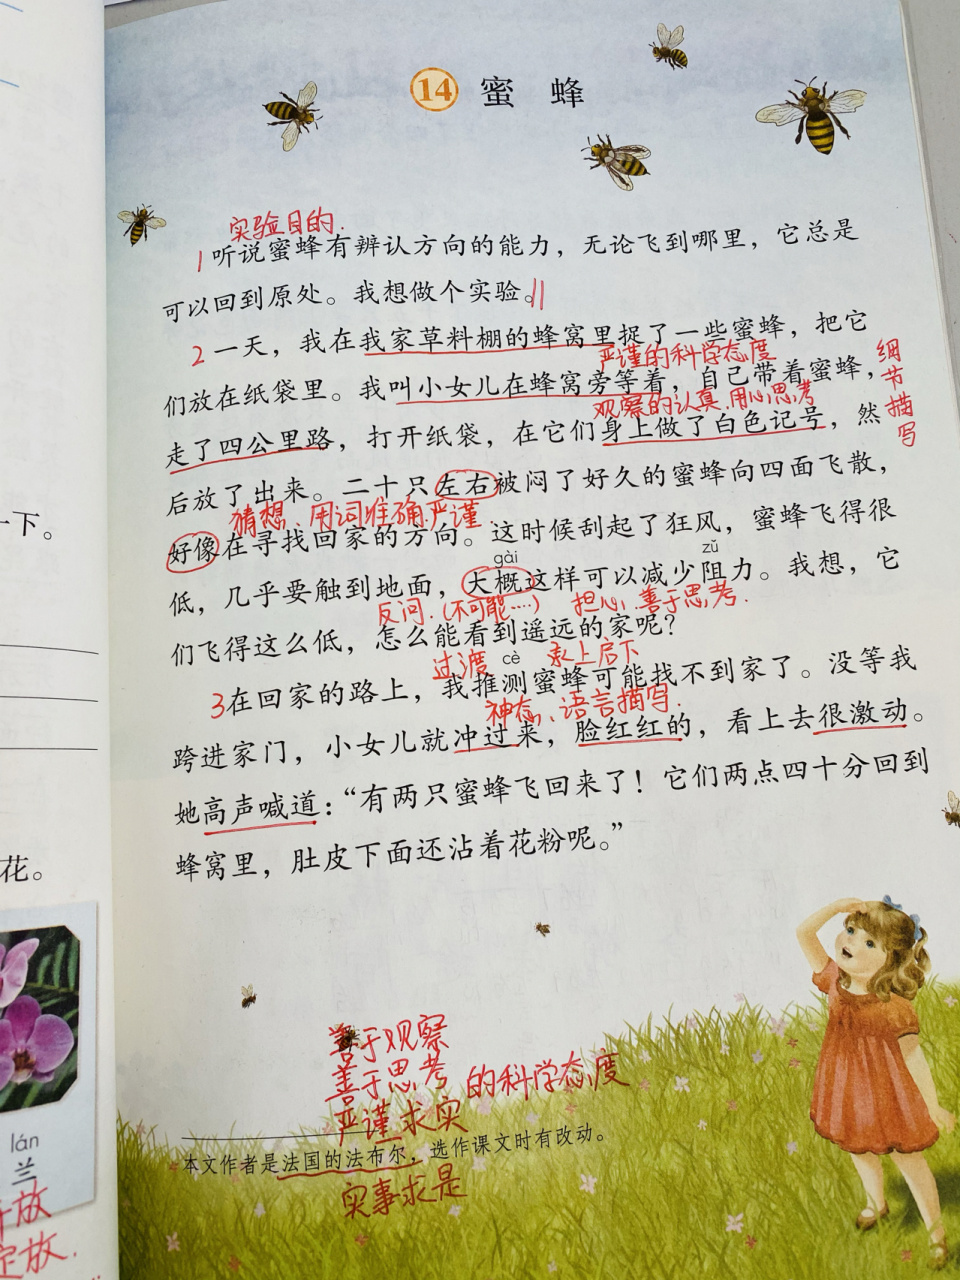 14 蜜蜂
实验目的.
1听说蜜蜂有辨认方向的能力，无论飞到哪里，它总是
可以回到原处。我想做个实验。
2一天，我在我家草料棚的蜂窝里捉了一些蜜蜂，把它
严谨的科学态度
们放在纸袋里。我叫小女儿在蜂窝旁等着，自己带着蜜蜂，
细节描写
观察的认真.用心思考
走了四公里路，打开纸袋，在它们身上做了白色记号，然
后放了出来。二十只左右被闷了好久的蜜蜂向四面飞散，
猜想、用词准确.严谨
好像在寻找回家的方向。这时候刮起了狂风，蜜蜂飞得很
gài zǔ
低，几乎要触到地面，大概这样可以减少阻力。我想，它
反问.(不可能····) 担心、善于思考.
们飞得这么低，怎么能看到遥远的家呢？
过渡 cè 承上启下
3在回家的路上，我推测蜜蜂可能找不到家了。没等我
神态、语言描写.
跨进家门，小女儿就冲过来，脸红红的，看上去很激动。
她高声喊道：“有两只蜜蜂飞回来了！它们两点四十分回到
蜂窝里，肚皮下面还沾着花粉呢。”
善于观察
善于思考 的科学态度
严谨求实
本文作者是法国的法布尔，选作课文时有改动。
实事求是
下。
花。
lán
兰
放
放.